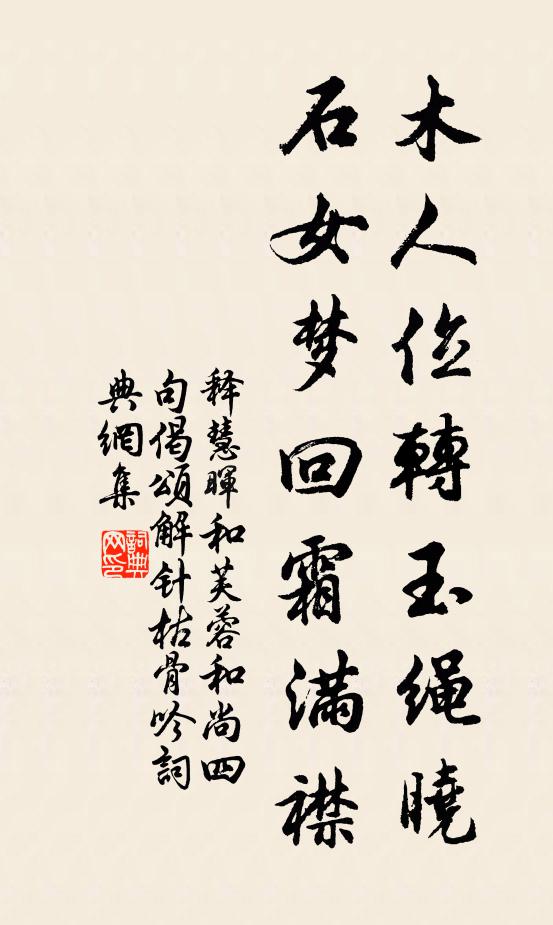 木人位轉玉绳曉
石女梦回霜满襟
释慧暉和芙蓉和尚四
句偈頌解针枯骨吟詞
典網集
詞典网印